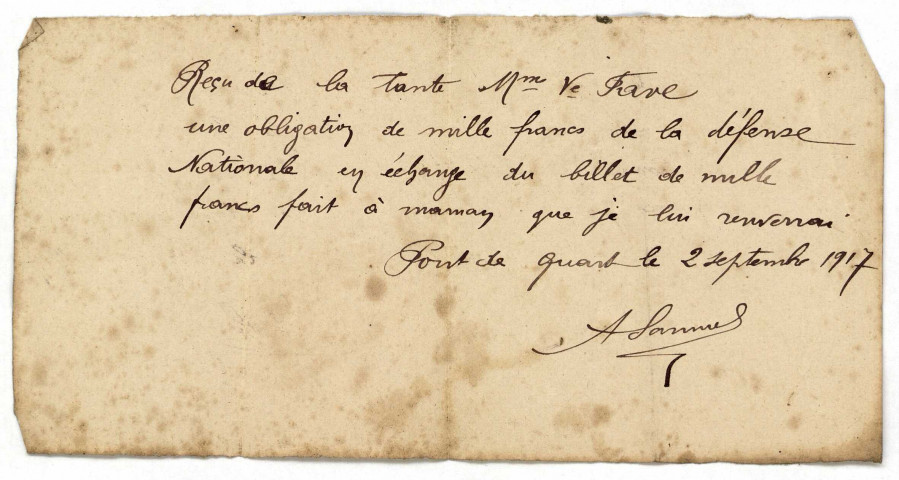 Reçu de la tante Mme Ve Fave
une obligation de mille francs de la défense
Nationale en échange du billet de mille
francs fait à maman que je lui renverrai
Pont de quart le 2 septembre 1917
A Samuel